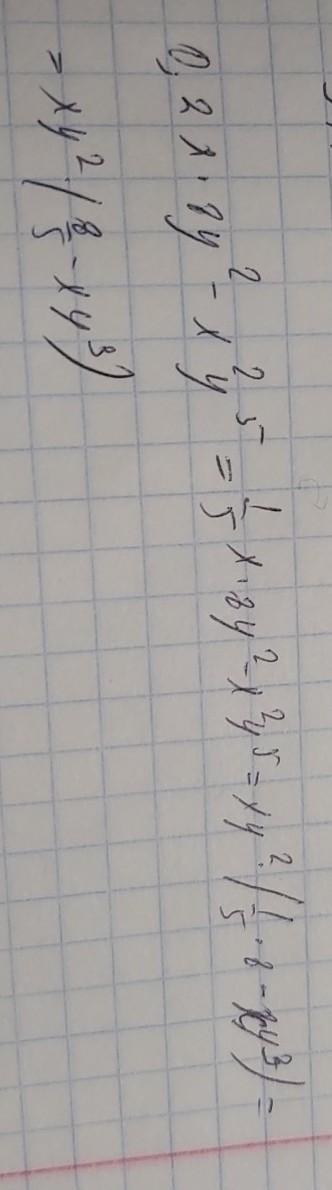 0,2x·8y² - x²y⁵ = 1/5 x·8y² - x²y⁵ = xy² (1/5·8 - xy³) =
= xy² (8/5 - xy³)